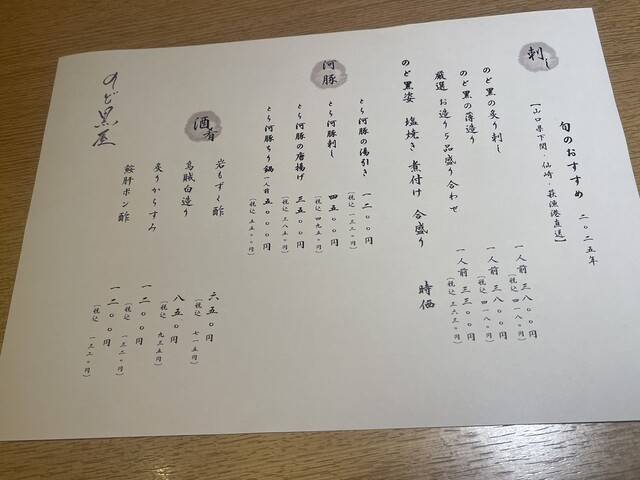 旬のおすすめ 二〇二五年
【山口県下関・仙崎・萩漁港直送】
刺し
のど黒の炙り刺し 一人前 三八〇〇円
(税込 四一八〇円)
のど黒の薄造り 一人前 三八〇〇円
(税込 四一八〇円)
厳選 お造り5品盛り合わせ 一人前 三三〇〇円
(税込 三六三〇円)
のど黒姿 塩焼き 煮付け 合盛り 時価
河豚
とら河豚の湯引き 一二〇〇円
(税込 一三二〇円)
とら河豚刺し 四五〇〇円
(税込 四九五〇円)
とら河豚の唐揚げ 三五〇〇円
(税込 三八五〇円)
とら河豚ちり鍋 一人前 五〇〇〇円
(税込 五五〇〇円)
酒肴
岩もずく酢 六五〇円
(税込 七一五円)
烏賊白造り 八五〇円
(税込 九三五円)
炙りからすみ 一二〇〇円
(税込 一三二〇円)
鮟肝ポン酢 一二〇〇円
(税込 一三二〇円)
のど黒屋